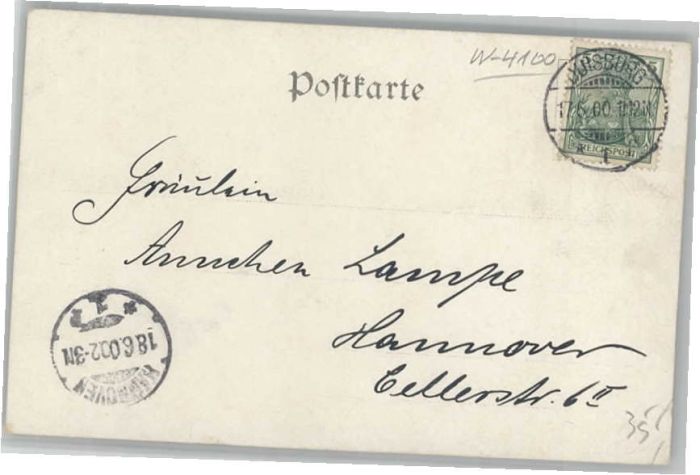 W-4100
Postkarte
DUISBURG
17.6.00. 11-12N
* 1
5
REICHSPOST
Fräulein
Annchen Lampe
Hannover
Cellerstr. 6 II
HANNOVER
18.6.00.2-3N
* 1
35